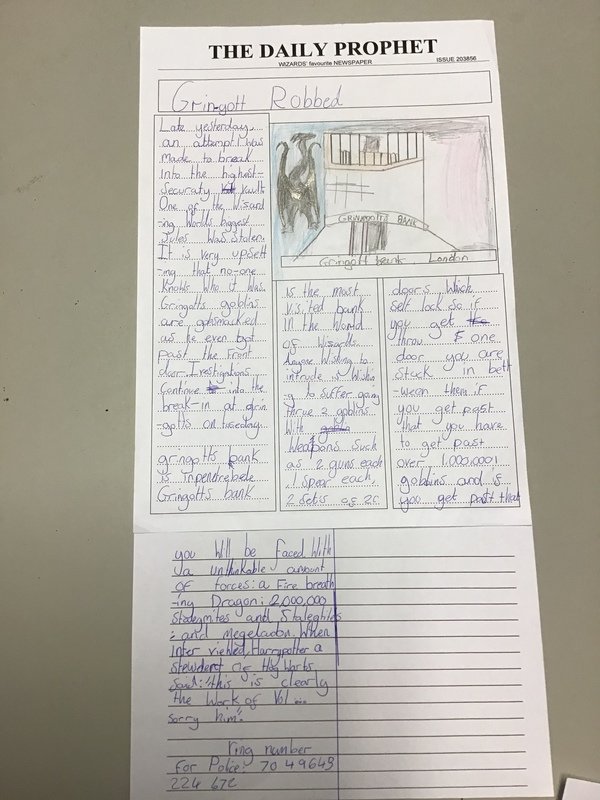 THE DAILY PROPHET
WIZARDS' favourite NEWSPAPER
ISSUE 203856
Gringott Robbed
Late yesterday,
an attempt was
made to break
into the highest-
securaty vault
One of the Wizard
-ing Worlds biggest
Jules was stolen.
It is very upsett
-ing that no-one
Knows who it was.
Gringotts goblins
are gobsmacked
as he even got
past the front
door. Investigations
Continue into the
break-in at grin
-gotts on tuseday
grngotts bank
is inpendrebele
Gringotts bank
GRINGOTTS BANK
Gringott bank, London
is the most
visited bank
in the World
of Wizards
Anyone Wishing to
intrude is Wishin
-g to suffer going
thrue 2 goblins
With
Weapons Such
as 2 guns each
,1 spear each,
2 sets of 20
doors which
self lock so if
you get
throu one
door you are
Stuck in bett
-ween them if
you get past
that you have
to get past
over 1,000,0001
goblins and if
you get past that
you will be faced With
Ja unthinkable amount
OF forces: a Fire breath
-ing Dragon: 2,000,000
and
: and Megelcadon. When
inter viewed, Harrypotter a
Stewdent of HogWarts
Said: "this is clearly
the Work of Vol ...
sorry him".
ring number
For Police: 70 49643
224 672